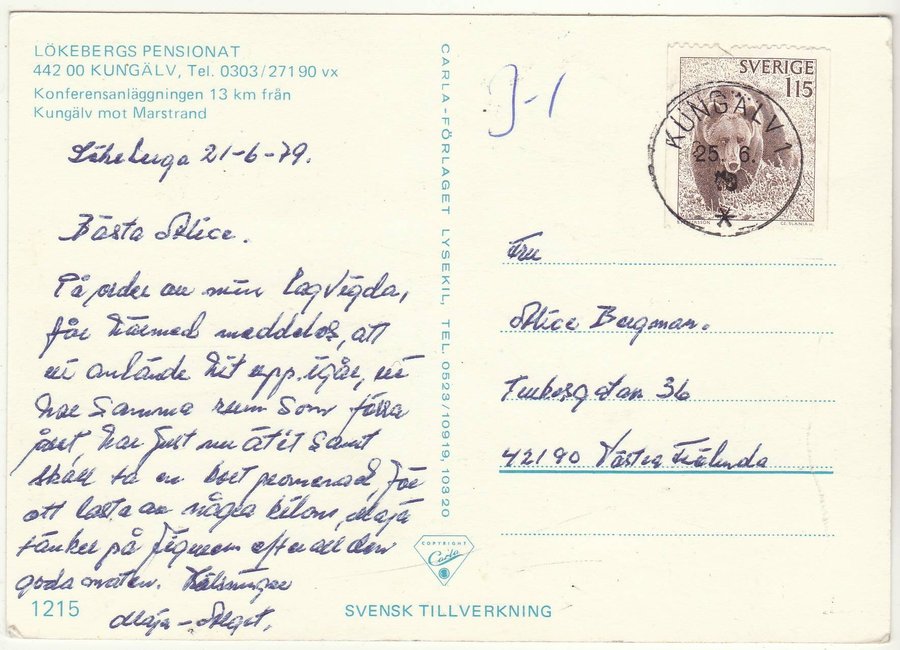 LÖKEBERGS PENSIONAT
442 00 KUNGÄLV, Tel. 0303/27190 vx
Konferensanläggningen 13 km från
Kungälv mot Marstrand
21-6-79.
Bästa Alice.
På order av min Lagvigda,
får härmed meddelas, att
vi anlände hit upp igår, vi
har samma rum som förra
året, har just nu ätit samt
skall ta en kort promenad, för
att lasta av några kilon, Maja
tänker på figuren efter all den
goda maten. Hälsningar
Maja - Algot.
1215
SVENSK TILLVERKNING
CARLA-FÖRLAGET LYSEKIL, TEL. 0523/10919, 10320
COPYRIGHT
Carla
J-1
SVERIGE
1 15
KUNGÄLV 1
25. 6.
Fru
Alice Bergman.
36
42190 Västra Frölunda